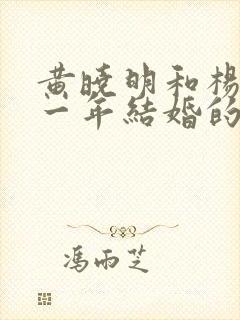 黄曉明和楊
一年結婚的
馮雨芝